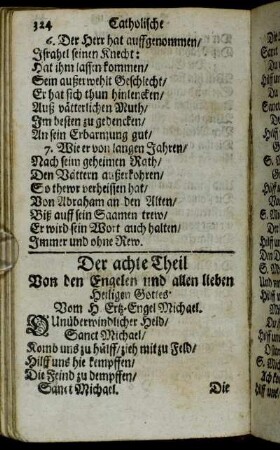 324 Catholische
6. Der Herr hat auffgenommen/
Israhel seinen Knecht:
Hat ihm lassen kommen/
Sein außerwehlt Geschlecht/
Er hat sich thun hinlencken/
Auß vätterlichen Muth/
Im besten zu gedencken/
An sein Erbarmung gut/
7. Wie er von langen Jahren/
Nach seim geheimen Rath/
Den Vättern außerkohren/
So thewr verheissen hat/
Von Abraham an den Alten/
Biß auff sein Saamen trew/
Er wird sein Wort auch halten/
Immer und ohne Rew.
Der achte Theil
Von den Engelen und allen lieben
Heiligen Gottes
Vom H. Ertz-Engel Michael.
O Unüberwindlicher Held/
Sanct Michael/
Komb uns zu hülff/zieh mit zu Feld/
Hilff uns hie kempffen/
Die Feind zu dempffen/
Sanct Michael. Die